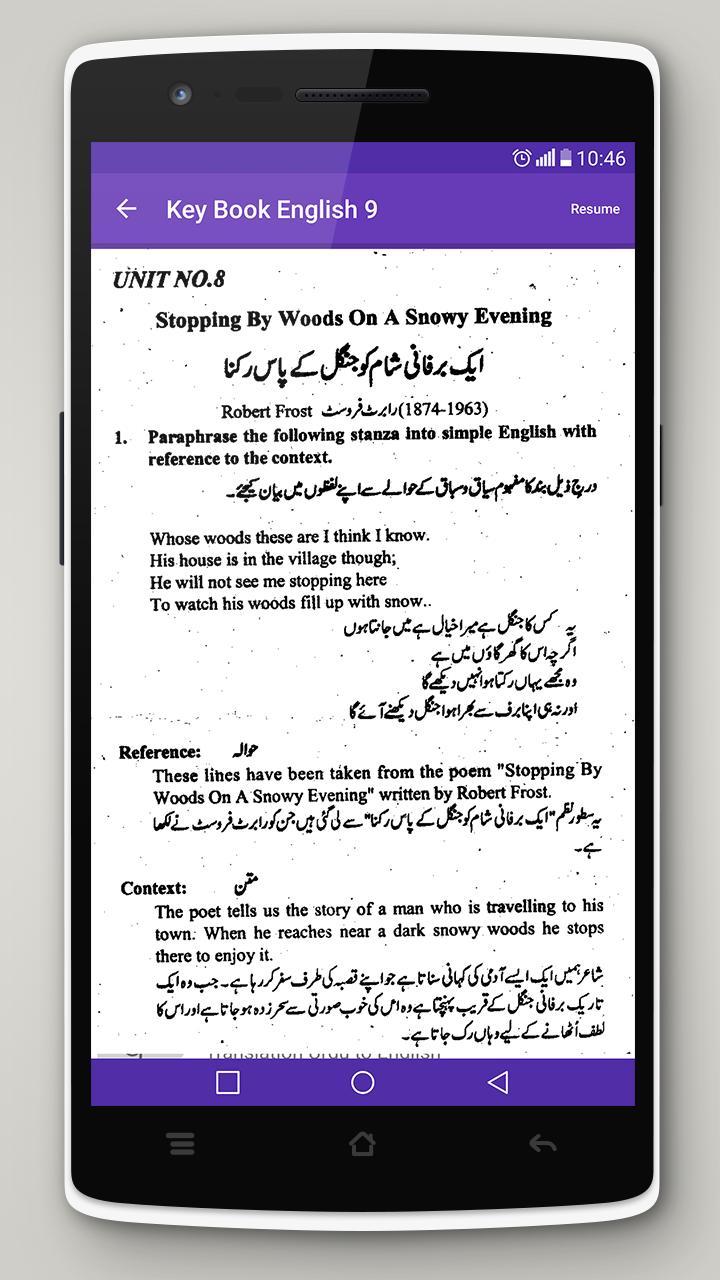 10:46
Key Book English 9
Resume
UNIT NO.8
Stopping By Woods On A Snowy Evening
ایک برفانی شام کو جنگل کے پاس رکنا
Robert Frost رابرٹ فروسٹ (1874-1963)
1. Paraphrase the following stanza into simple English with
reference to the context.
درج ذیل بند کا مفہوم سیاق و سباق کے حوالے سے اپنے لفظوں میں بیان کیجئے۔
Whose woods these are I think I know.
His house is in the village though;
He will not see me stopping here
To watch his woods fill up with snow..
یہ کس کا جنگل ہے میرا خیال ہے میں جانتا ہوں
اگرچہ اس کا گھر گاؤں میں ہے
وہ مجھے یہاں رکتا ہوا نہیں دیکھے گا
اور نہ ہی اپنا برف سے بھرا ہوا جنگل دیکھنے آئے گا
Reference: حوالہ
These lines have been taken from the poem "Stopping By
Woods On A Snowy Evening" written by Robert Frost.
یہ سطور نظم "ایک برفانی شام کو جنگل کے پاس رکنا" سے لی گئی ہیں جن کو رابرٹ فروسٹ نے لکھا
ہے۔
Context: متن
The poet tells us the story of a man who is travelling to his
town. When he reaches near a dark snowy woods he stops
there to enjoy it.
شاعر ہمیں ایک ایسے آدمی کی کہانی سناتا ہے جو اپنے قصبہ کی طرف سفر کر رہا ہے۔ جب وہ ایک
تاریک برفانی جنگل کے قریب پہنچتا ہے وہ اس کی خوب صورتی سے سحر زدہ ہو جاتا ہے اور اس کا
لطف اُٹھانے کے لیے وہاں رک جاتا ہے۔
Translation Urdu to English